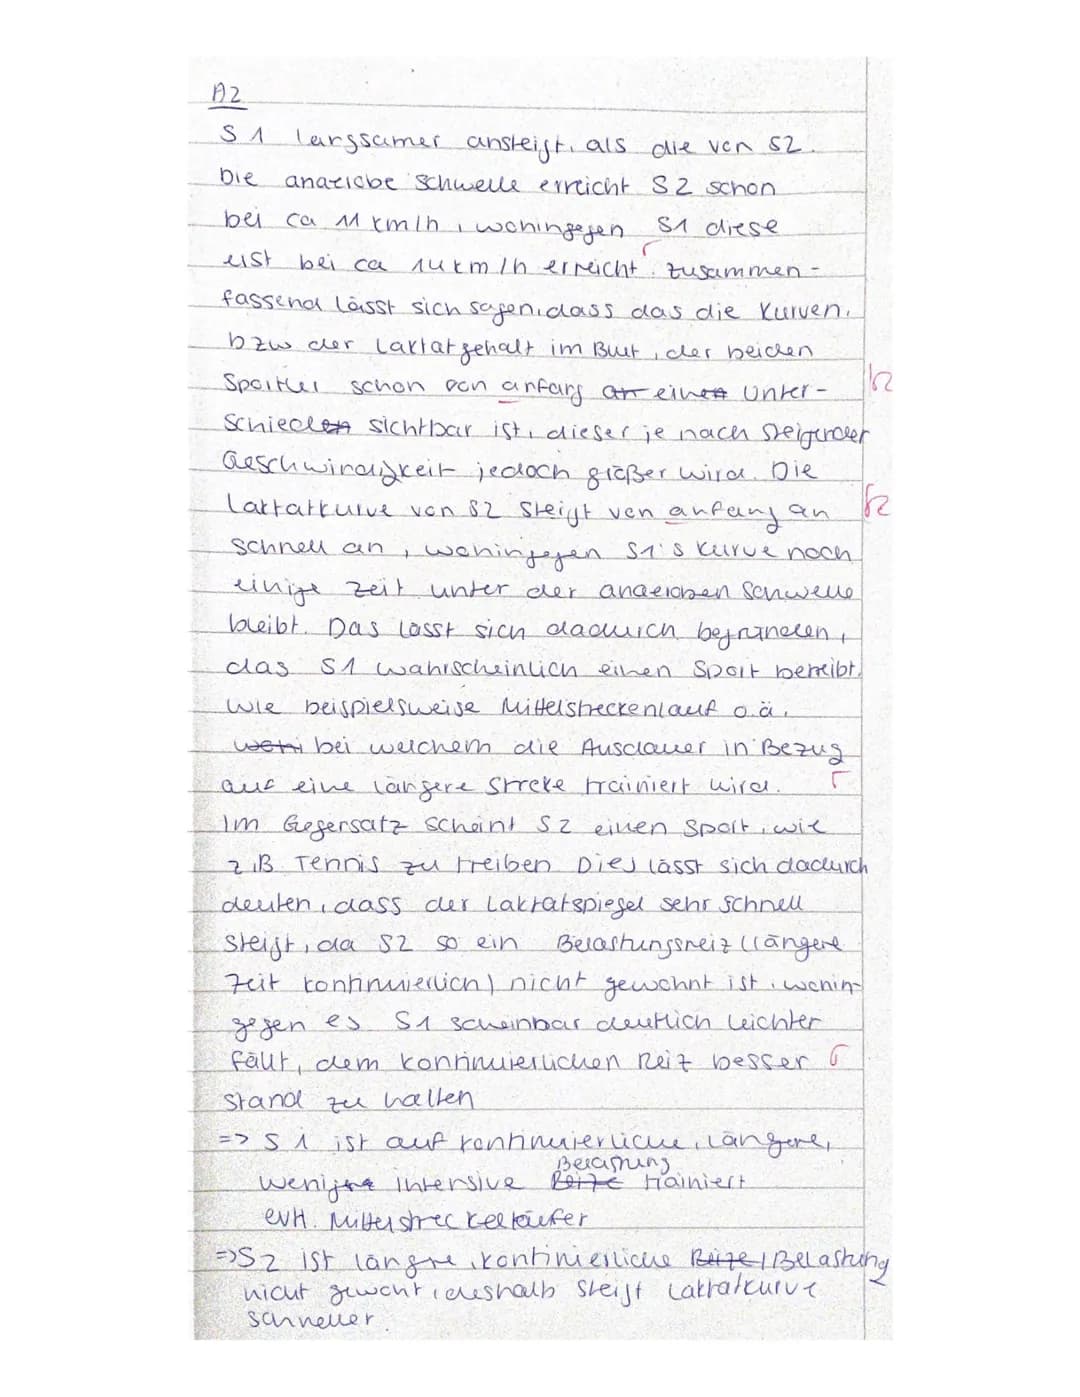 A2
S1 langsamer ansteigt, als die von S2.
Die anaerobe Schwelle erreicht S2 schon
bei ca 11 km/h, woningegen S1 diese
erst bei ca 14 km/h erreicht. Zusammen-
fassend lässt sich sagen, dass das die Kurven,
bzw der Laktatgehalt im Blut, der beiden
Sportler schon von anfang an einen Unter-
schieden sichtbar ist, dieser je nach steigender
Geschwindigkeit jedoch größer wird. Die
Laktatkurve von S2 steigt von anfang an
schnell an, woningegen S1's Kurve noch
einige Zeit unter der anaeroben Schwelle
bleibt. Das lässt sich dadurch begründen,
das S1 wahrscheinlich einen Sport betreibt,
wie beispielsweise Mittelstreckenlauf o.ä.
bei welchem die Ausdauer in Bezug
auf eine längere Streke trainiert wird.
Im Gegensatz scheint S2 einen Sport, wie
z.B. Tennis zu treiben. Dies lässt sich dadurch
deuten, dass der Laktatspiegel sehr schnell
steigt, da S2 so ein Belastungsreiz (längere
Zeit kontinuierlich) nicht gewohnt ist, wonin-
gegen es S1 scheinbar deutlich leichter
fällt, dem kontinuierlichen Reiz besser
stand zu halten
=> S1 ist auf kontinuierliche, längere,
Belastung
weniger intensive Reize trainiert
evtl. Mittelstreckenläufer
=> S2 ist längre, kontinierliche Reize/Belastung
nicht gewohnt, deshalb steigt Laktatkurve
schneller.